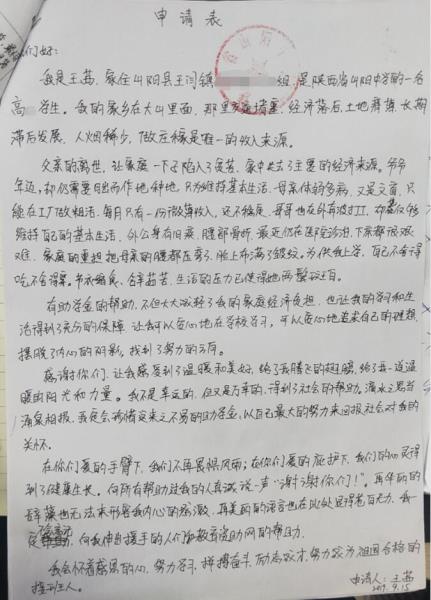 申请表
们好：
我是王茹，家住山阳县王闫镇 组，是陕西省山阳中学的一名
高 学生。我的家乡在大山里面，那里交通堵塞，经济落后，土地薄瘠，长期
滞后发展，人烟稀少，做庄稼是唯一的收入来源。
父亲的离世，让家庭一下子陷入了贫苦，家中失去了主要的经济来源。爷爷
年迈，却仍需日出而作地种地，只为维持基本生活。母亲体弱多病，又是文盲，只
能在工厂做粗活，每月只有一份微薄收入，还不稳定。哥哥也在外省波打工，
维持自己的基本生活，外公身有旧疾，腰部骨折，最近仍在医院治疗，下床都很艰
难。家庭的重担把母亲的腰都压弯了，脸上布满了皱纹。为供我上学，自己不舍得
吃不舍得穿。节衣缩食，含辛茹苦，生活的压力已使得她两鬓斑白。
有助学金的帮助，不但大大减轻了我的家庭经济负担，也让我的学习和生
活得到了充分的保障，让我可以安心地在学校学习，可以安心地追求自己的理想，
摆脱了内心的阴影，找到了努力的方向。
感谢你们，让我感受到了温暖和美好，给了我腾飞的翅膀，给了我一道温
暖的阳光和力量。我不是幸运的，但又是万幸的，得到了社会的帮助。滴水之恩当
涌泉相报，我定会珍惜这来之不易的助学金，以自己最大的努力来回报社会对我的
关怀。
在你们爱的手臂下，我们不再畏惧风雨；在你们爱的庇护下，我们的心灵得
到了健康生长。向所有帮助过我的人真诚说一声“谢谢你们！”，再华丽的
辞藻也无法来形容我内心的感激，再美丽的语言也在此处显得苍白无力，我
向我伸出援手的人们 助网的帮助。
我会怀着感恩的心，努力学习，拼搏奋斗，励志成才，努力成为祖国合格的
接班人。
申请人：王茹
2019.9.15